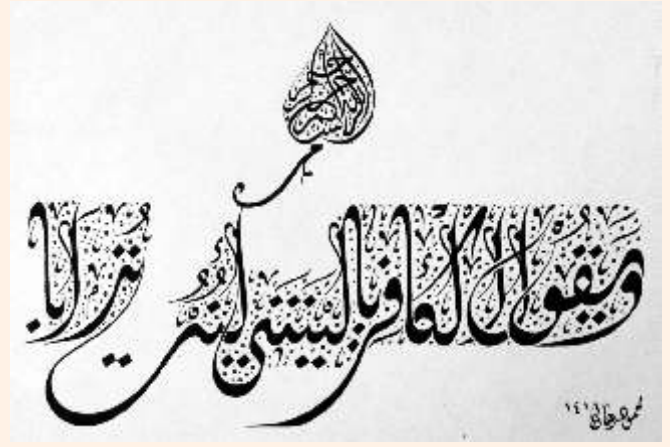 بسم الله الرحمن الرحيم
ويقول الكافر ياليتني كنت ترابا